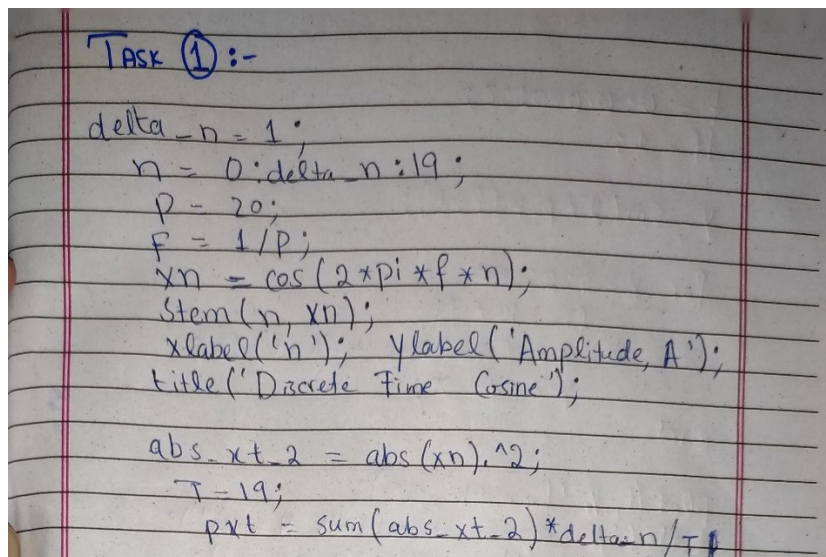 TASK ① :-
delta_n = 1;
n = 0:delta_n:19;
P = 20;
f = 1/P;
xn = cos(2*pi*f*n);
stem(n, xn);
xlabel('n'); ylabel('Amplitude, A');
title('Discrete Time Cosine');
abs_xt_2 = abs(xn).^2;
T = 19;
pxt = sum(abs_xt_2)*delta_n/T